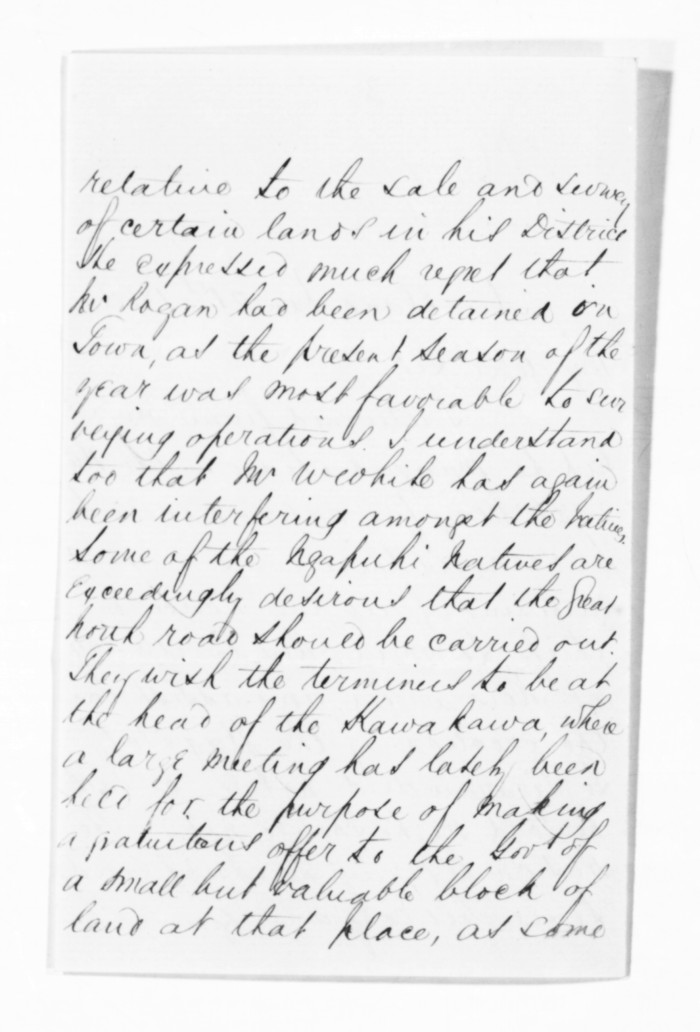 relative to the sale and survey
of certain lands in his District
He expressed much regret that
Mr Rogan had been detained in
Town, as the present season of the
year was most favorable to sur
veying operations. I understand
too that Mr has again
been interfering amongst the Natives.
Some of the Ngapuhi Natives are
exceedingly desirous that the Great
North road should be carried out.
They wish the terminus to be at
the head of the Kawakawa, where
a large meeting has lately been
held for the purpose of making
a gratuitous offer to the Govt of
a small but valuable block of
land at that place, as some